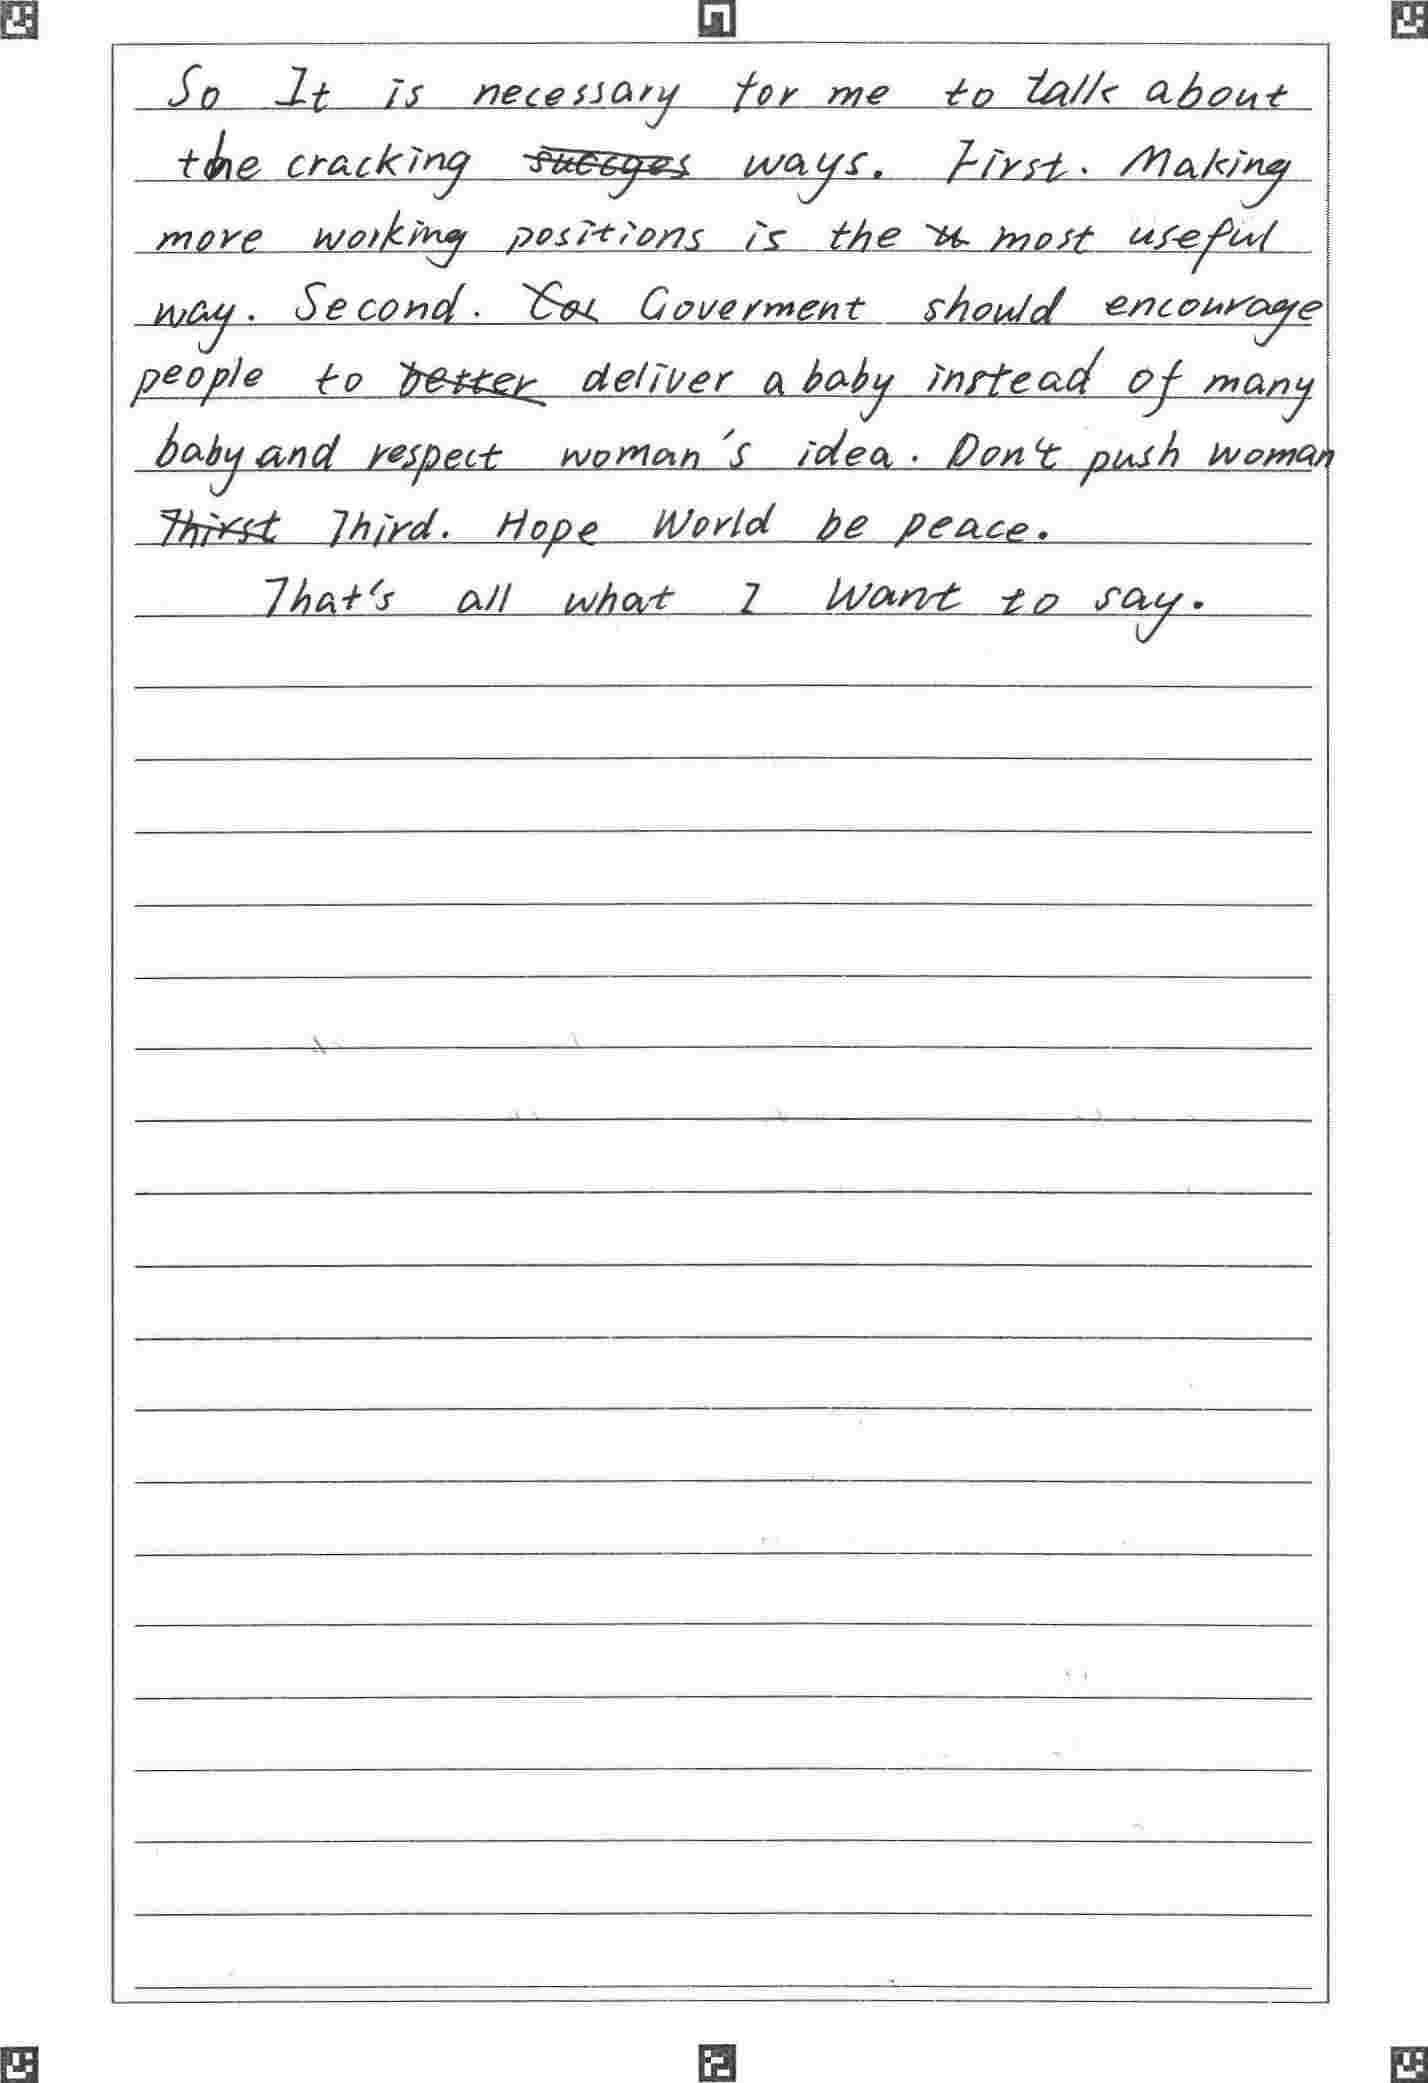 So It is necessary for me to talk about
the cracking ways. First. Making
more working positions is the most useful
way. Second. Goverment should encourage
people to better deliver a baby instead of many
baby and respect woman's idea. Don't push woman
Thirst Third. Hope World be peace.
That's all what I want to say.